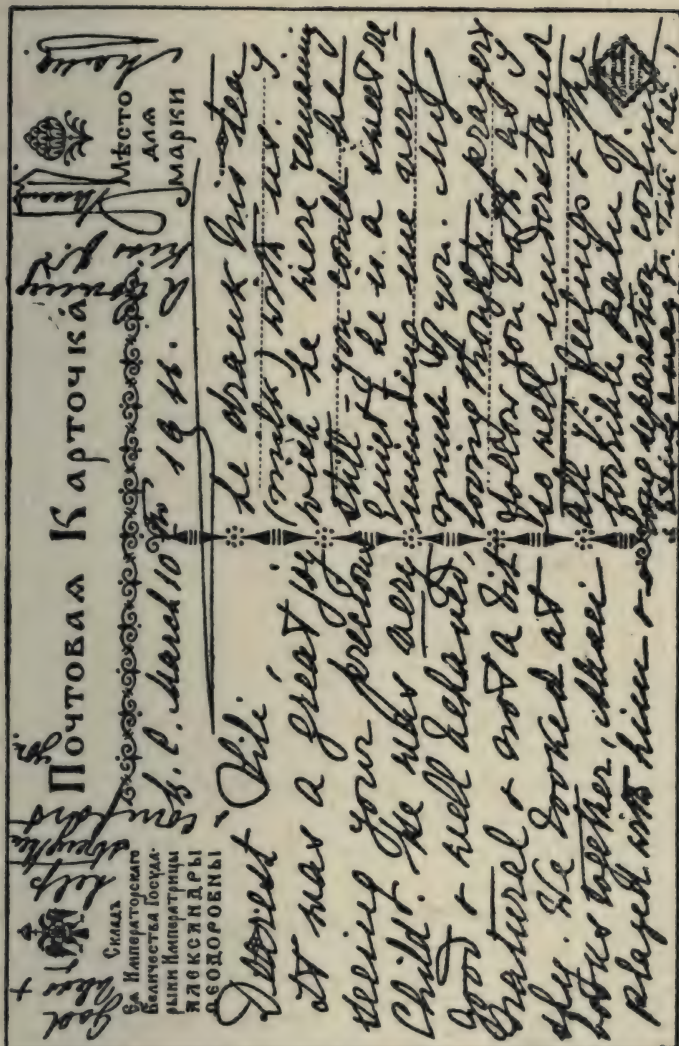 Почтовая Карточка
Складъ
Ея Императорскаго
Величества Госуда-
рыни Императрицы
АЛЕКСАНДРЫ
ѲЕОДОРОВНЫ
Мѣсто
для
марки
God
help
March 10th 19
Dearest Lili
It was a great joy
seeing your precious
Child. He was very
good & well behaved,
natural & not a bit
shy. We looked at
books together, Marie
played with him &
he drank his tea
(milk) with us. I
wish he were remaining
still - you could be
quiet & he is a sweet
reminding me very
much of you. My
loving thoughts & prayers
follow you both, as I
so well understand
all feelings & the
horrible pain of
separation